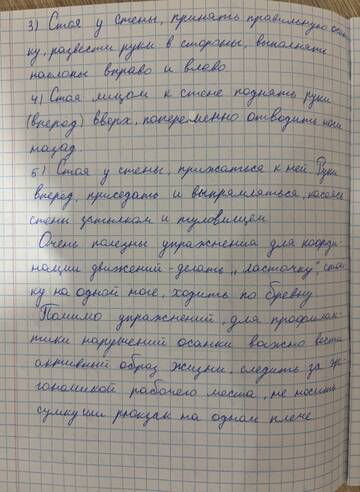 3) Стоя у стены, принять правильную осан-
ку, развести руки в стороны, выполнять
наклоны вправо и влево.
4) Стоя лицом к стене поднять руки
(вперед) вверх, попеременно отводить ноги
назад
5) Стоя у стены, прижаться к ней. Руки
вперед, приседать и выпрямляться, касаясь
стены затылком и туловищем
Очень полезны упражнения для коорди-
нации движений - делать "ласточку", стой-
ку на одной ноге, ходить по бревну
Помимо упражнений, для профилак-
тики нарушений осанки важно вести
активный образ жизни, следить за эр-
гономикой рабочего места, не носить
сумку или рюкзак на одном плече